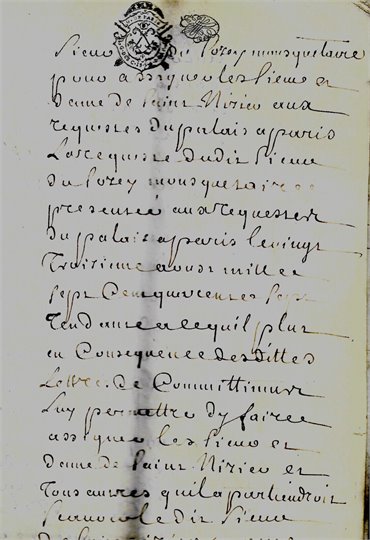 Sieur du Lorey mousquetaire
pour assigner les Sieur et
dame de Saint Nizier aux
requestes du palais a paris
La requeste dudit Sieur
du Lorey mousquetaire
presentée aux requestes
du palais a paris le vingt
Troisieme aoust mille
Sept Cens quarente Sept
Tendante a ce quil plut
en Consequence desdittes
Lettres de Committimus
Luy permettre dy faire
assigner les Sieur et
dame de Saint Nizier et
Tous autres quil apartiendroit
Sieur